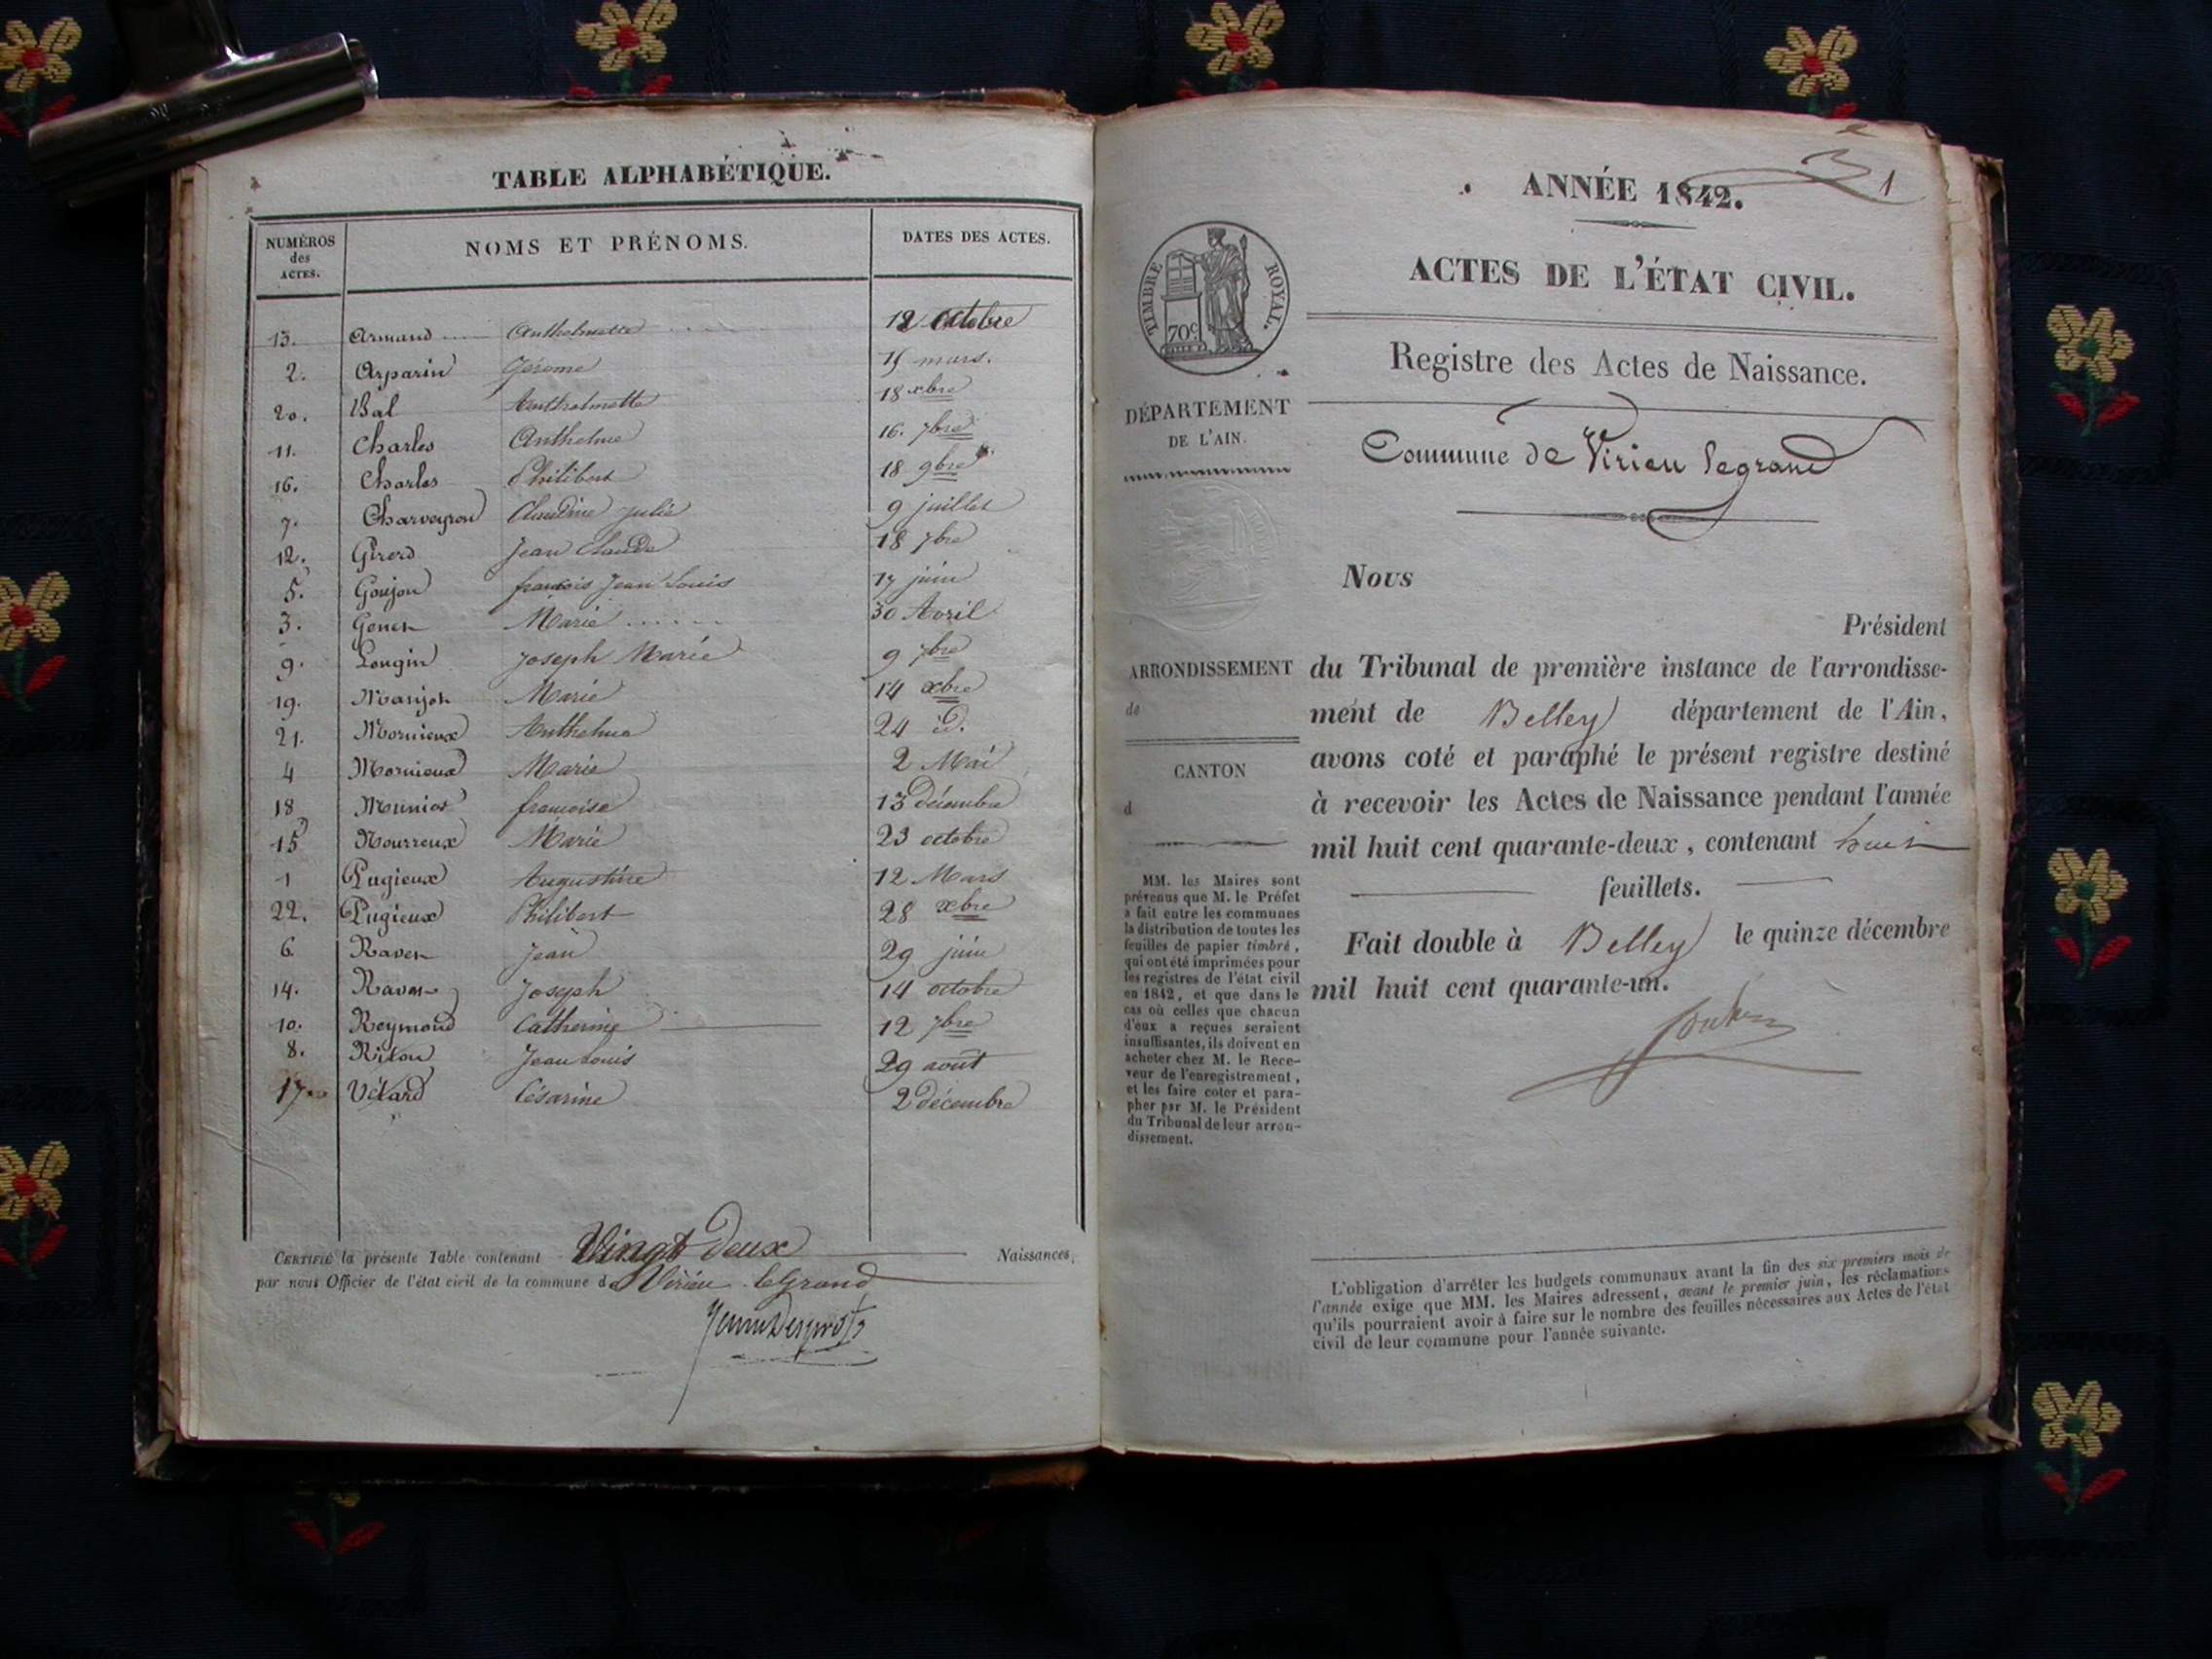 TABLE ALPHABÉTIQUE.
NUMÉROS des ACTES. NOMS ET PRÉNOMS. DATES DES ACTES.
13. Armand Anthelmette 12 octobre
2. Arparin Jérome 15 mars.
20. Bal Anthelmette 18 xbre
11. Charles Anthelme 16. 7bre
16. Charles Philibert 18 9bre
7. Charveyron Claudine Julie 9 juillet
12. Girerd Jean Claude 18 7bre
5. Goujon françois Jean Louis 17 juin
3. Marie 30 Avril
9. Longin Joseph Marie 9 7bre
19. Marie 14 xbre
21. Mornieux Anthelme 24 id.
4 Mornieux Marie 2 Mai
18 Munier françoise 13 décembre
15 Mourreux Marie 23 octobre
1 Pugieux Augustine 12 Mars
22. Pugieux Philibert 28 xbre
6. Ravet Jean 29 juin
14. Ravet Joseph 14 octobre
10. Reymond Catherine 12 7bre
8. Jean Louis 29 août
17 Vétard Césarine 2 décembre
CERTIFIÉ la présente Table contenant Vingt deux Naissances,
par nous Officier de l'état civil de la commune de Virieu leGrand
1
ANNÉE 1842.
ACTES DE L'ÉTAT CIVIL.
TIMBRE ROYAL.
70c
Registre des Actes de Naissance.
DÉPARTEMENT
DE L'AIN.
Commune de Virieu legrand
Nous
Président
ARRONDISSEMENT
de
du Tribunal de première instance de l'arrondisse-
ment de Belley département de l'Ain,
avons coté et paraphé le présent registre destiné
à recevoir les Actes de Naissance pendant l'année
mil huit cent quarante-deux, contenant huit
feuillets.
Fait double à Belley le quinze décembre
mil huit cent quarante-un.
CANTON
d
MM. les Maires sont
prévenus que M. le Préfet
a fait entre les communes
la distribution de toutes les
feuilles de papier timbré,
qui ont été imprimées pour
les registres de l'état civil
en 1842, et que dans le
cas où celles que chacun
d'eux a reçues seraient
insuffisantes, ils doivent en
acheter chez M. le Rece-
veur de l'enregistrement,
et les faire coter et para-
pher par M. le Président
du Tribunal de leur arron-
dissement.
L'obligation d'arrêter les budgets communaux avant la fin des six premiers mois de
l'année exige que MM. les Maires adressent, avant le premier juin, les réclamations
qu'ils pourraient avoir à faire sur le nombre des feuilles nécessaires aux Actes de l'état
civil de leur commune pour l'année suivante.